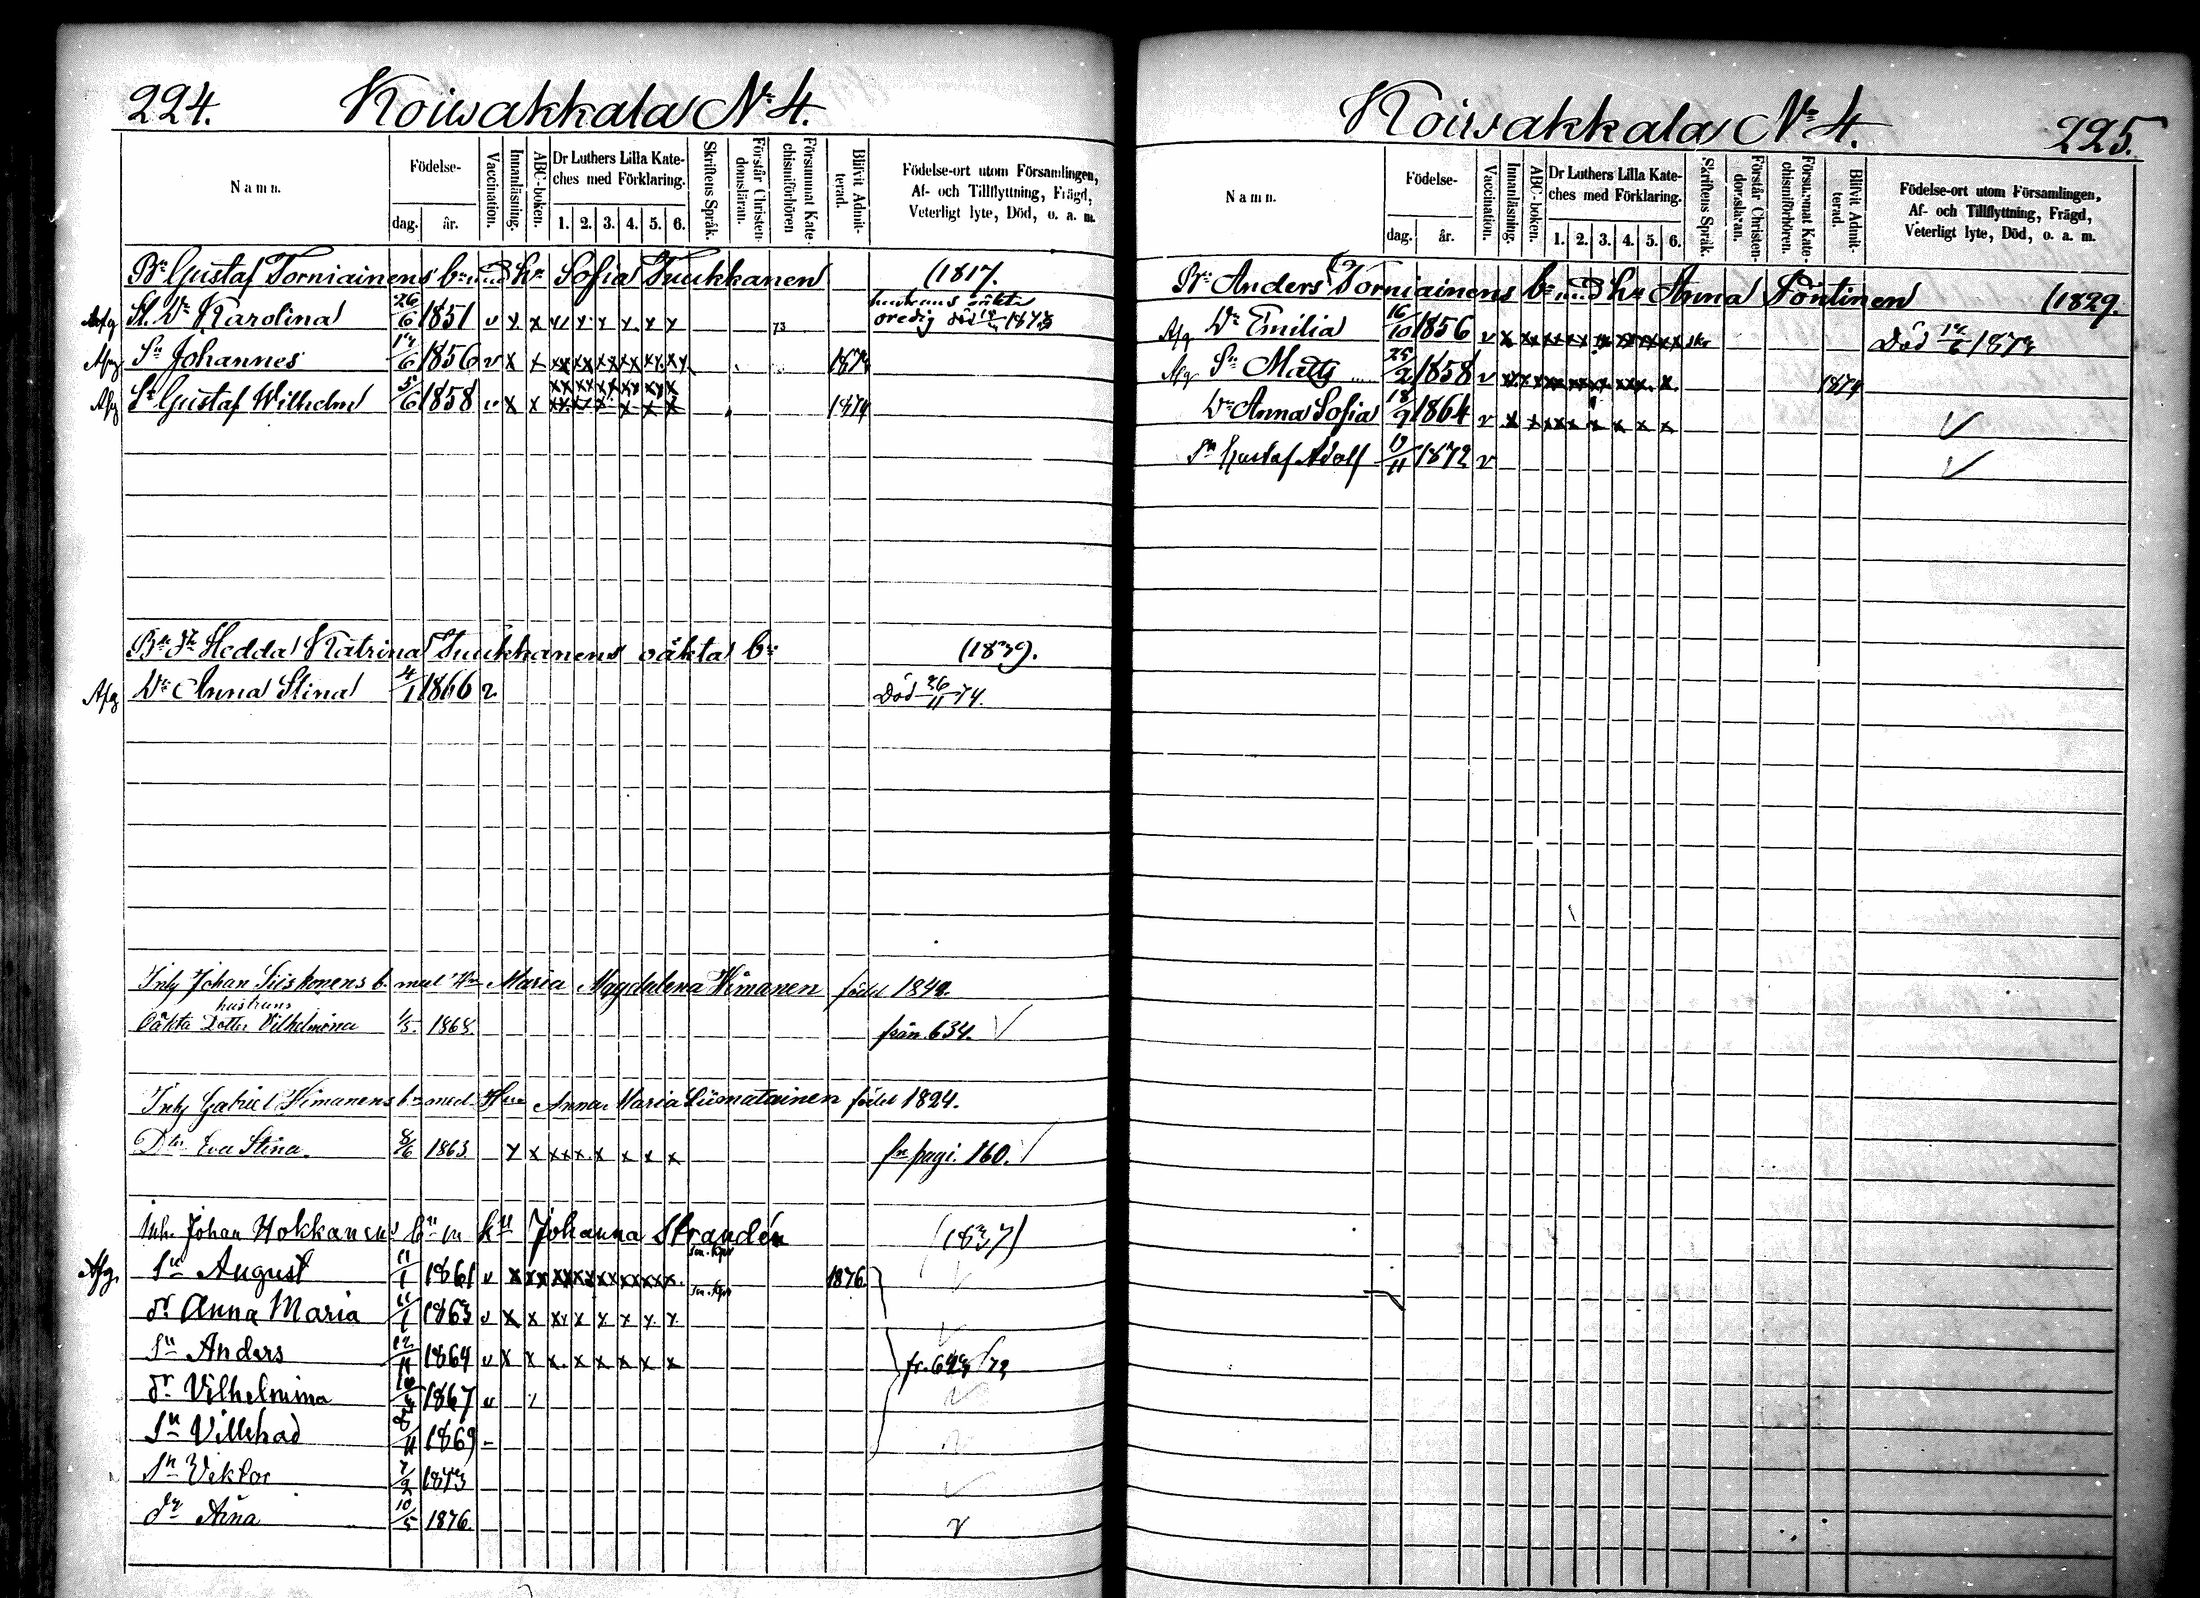 224. Koiwakkala N:o 4.
Namn. Födelse- dag. år. Vaccination. Innanläsning. ABC-boken. Dr Luthers Lilla Kateches med Förklaring. 1. 2. 3. 4. 5. 6. Skriftens Språk. Förstår Christendomsläran. Försummat Katechismiförhören Blifvit Admitterad. Födelse-ort utom Församlingen, Af- och Tillflyttning, Frägd, Veterligt lyte, Död, o. a. m.
Bn Gustaf Torniainens b:n med h:u Sofia Tuukkanen (1817.
Afg St. Dr Karolina 26/6 1851 v x x x x x x x x 73 hustruns oäkta
oredig död 1873
Afg Sn Johannes 17/6 1856 v x x xx xx xx xx xx xx 1873
Afg Sn Gustaf Wilhelm 5/6 1858 v x x xx xx xx xx xx x 1874
Hedda Katrina Tuukkanens oäkta b:n (1839).
Afg Dr Anna Stina 4/1 1866 v Död 26/11 74.
Inh Johan Siiskonens b. med Hu Maria Magdalena Himanen född 1842.
hustruns
Oäkta Dotter Vilhelmina 1/5. 1868. från 634. √
Inh Gabriel Himanens b:n med Hu Anna Maria Liimatainen född 1824.
Dtr Eva Stina. 8/6 1863 x x xx x x x x x fn pagi. 160. √
Inh. Johan Hokkanens b:n m hu Johanna Strandén (1837)
Afg. Sn August 11/1 1861 v x xx xx xx xx xx xx x. 1876
dr Anna Maria 11/1 1863 v x x xx x x x x x
Sn Anders 12/11 1864 v x x x. x x x x x
dr Vilhelmina 1867 v
Sn Villehad 11 1869 -
Sn Viktor 7/2 1873
dr Aina 10/5 1876. v
Koiwakkala N:o 4. 225.
Namn. Födelse- dag. år. Vaccination. Innanläsning. ABC-boken. Dr Luthers Lilla Kateches med Förklaring. 1. 2. 3. 4. 5. 6. Skriftens Språk. Förstår Christendomsläran. Försummat Katechismiförhören. Blifvit Admitterad. Födelse-ort utom Församlingen, Af- och Tillflyttning, Frägd, Veterligt lyte, Död, o. a. m.
Bn Anders Torniainens b:n med h:u Anna Pöntinen (1829.
Afg Dr Emilia 16/10 1856 v x xx xx xx x xx xx xx skr Död 6 1873
Afg Sn Matts 25/2 1858 v xx xx xx xx x xx x. x. 1874
Dr Anna Sofia 18/9 1864 v x xx xx x x x x x √
Sn Gustaf Adolf 13/11 1872 v √